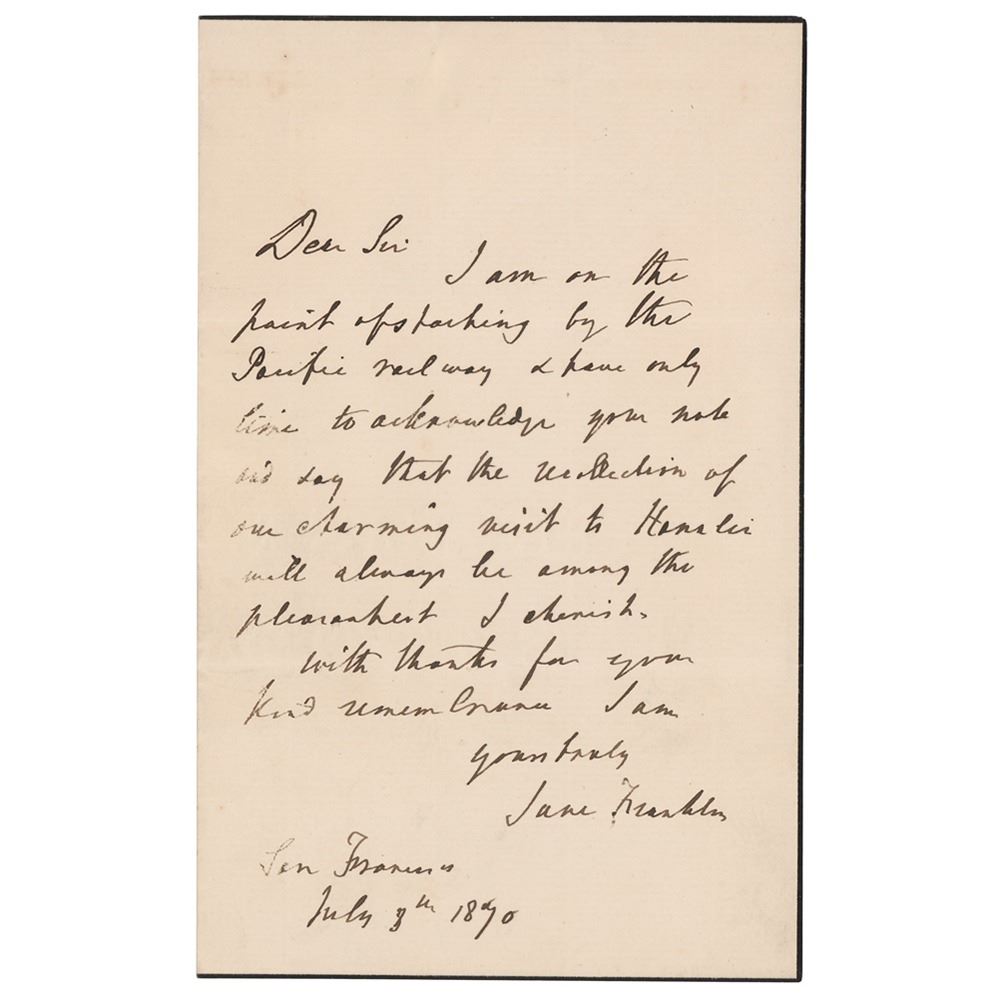 Dear Sir
I am on the
point of starting by the
Pacific railway & have only
time to acknowledge your note
and say that the recollection of
our charming visit to Hanalei
will always be among the
pleasantest I cherish.
with thanks for your
kind remembrance I am
yours truly
Jane Franklin
San Francisco
July 8th 1870